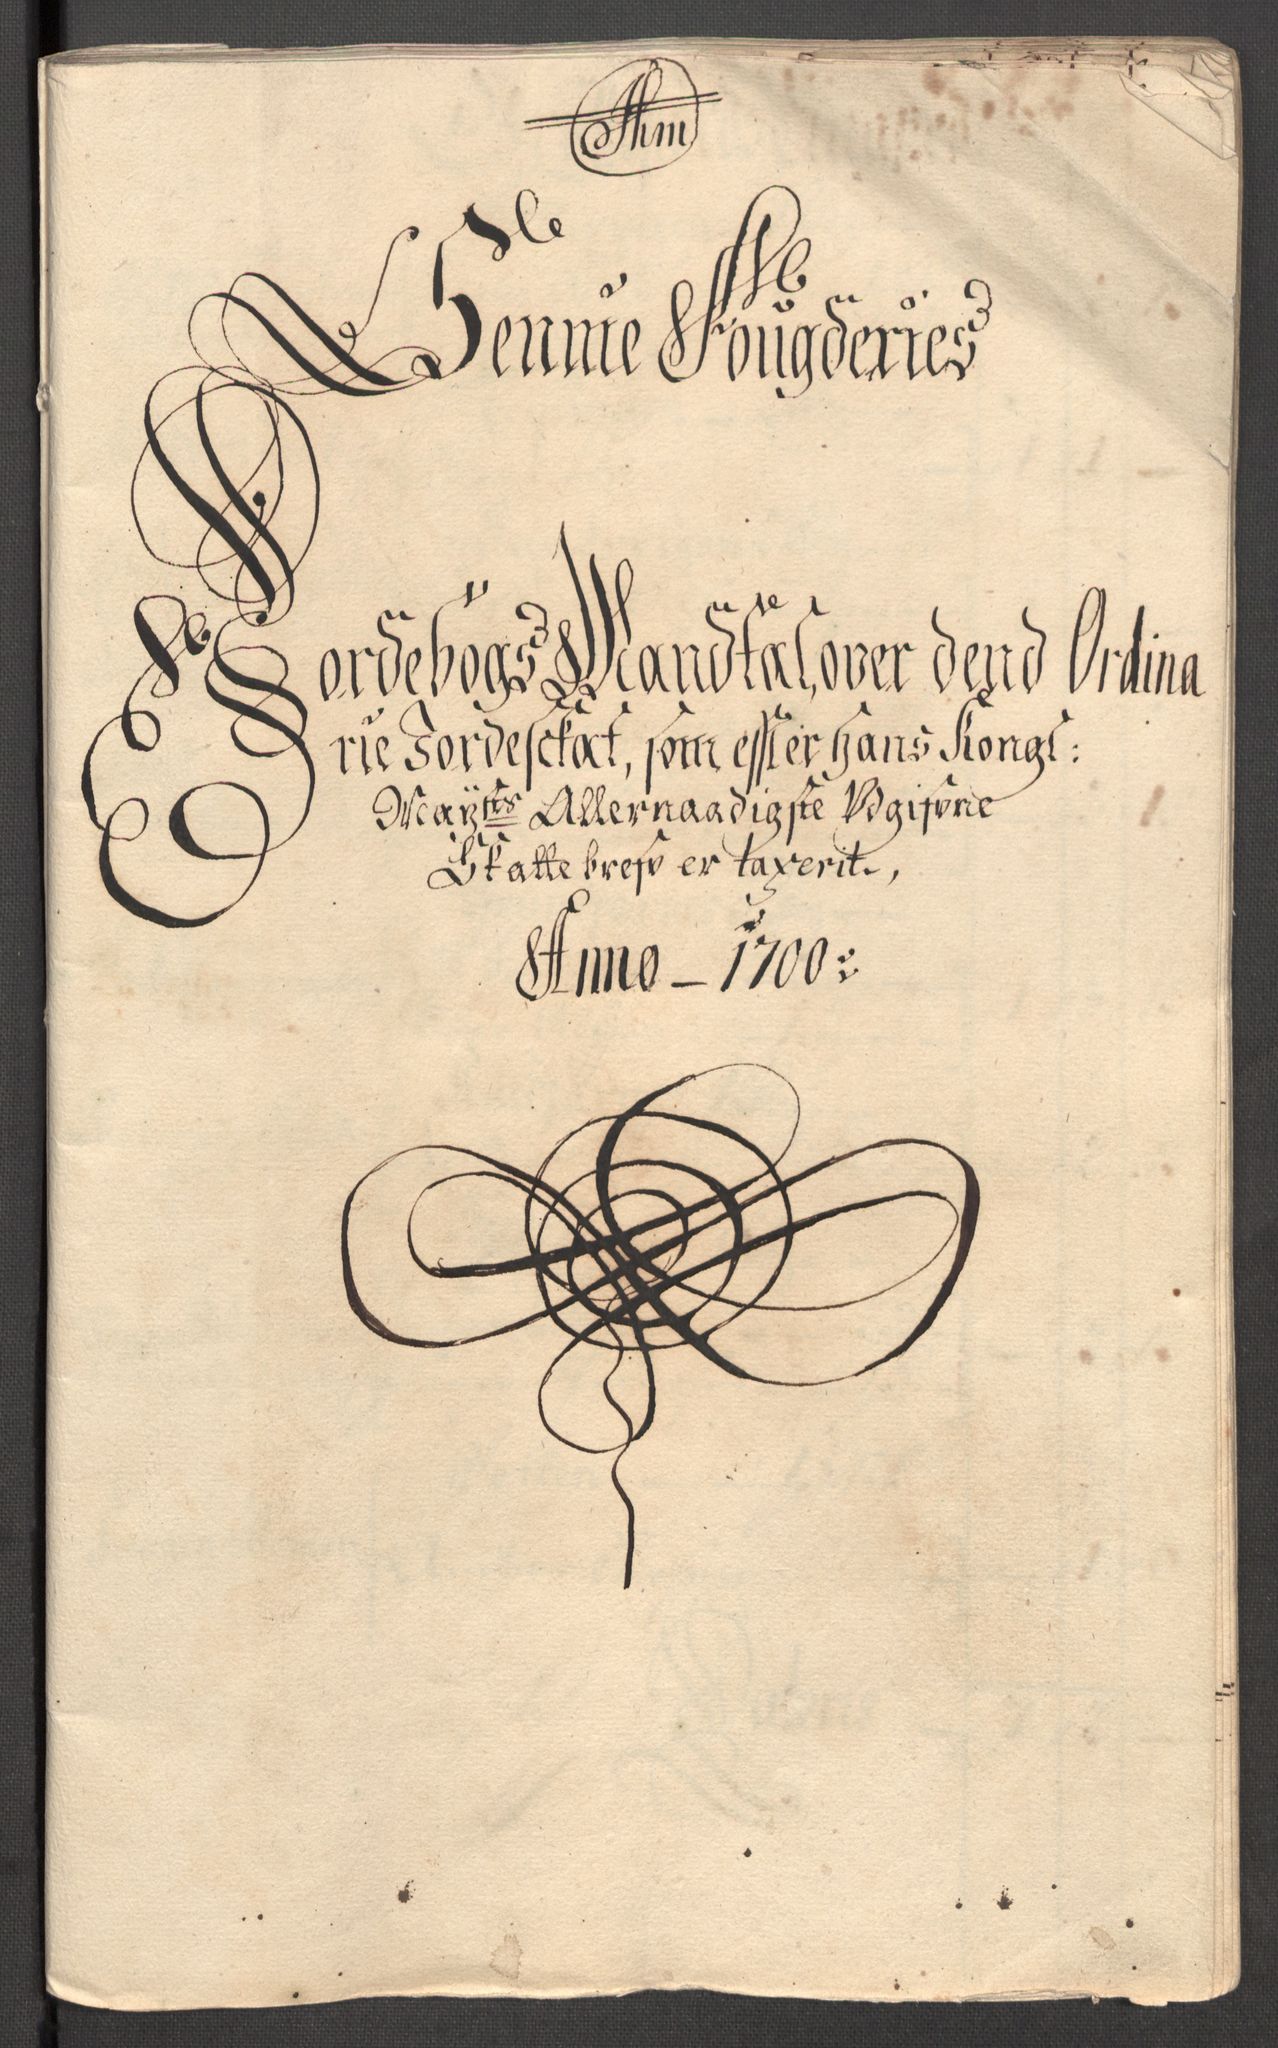 Sennie Fougderies
Jordebogs Mandtal, over dend Ordina
rie Jordeskat, som effter hans Kongl:
Mayts Allernaadigste Udgifvne
Skattebref er taxerit.,
Anno - 1700: